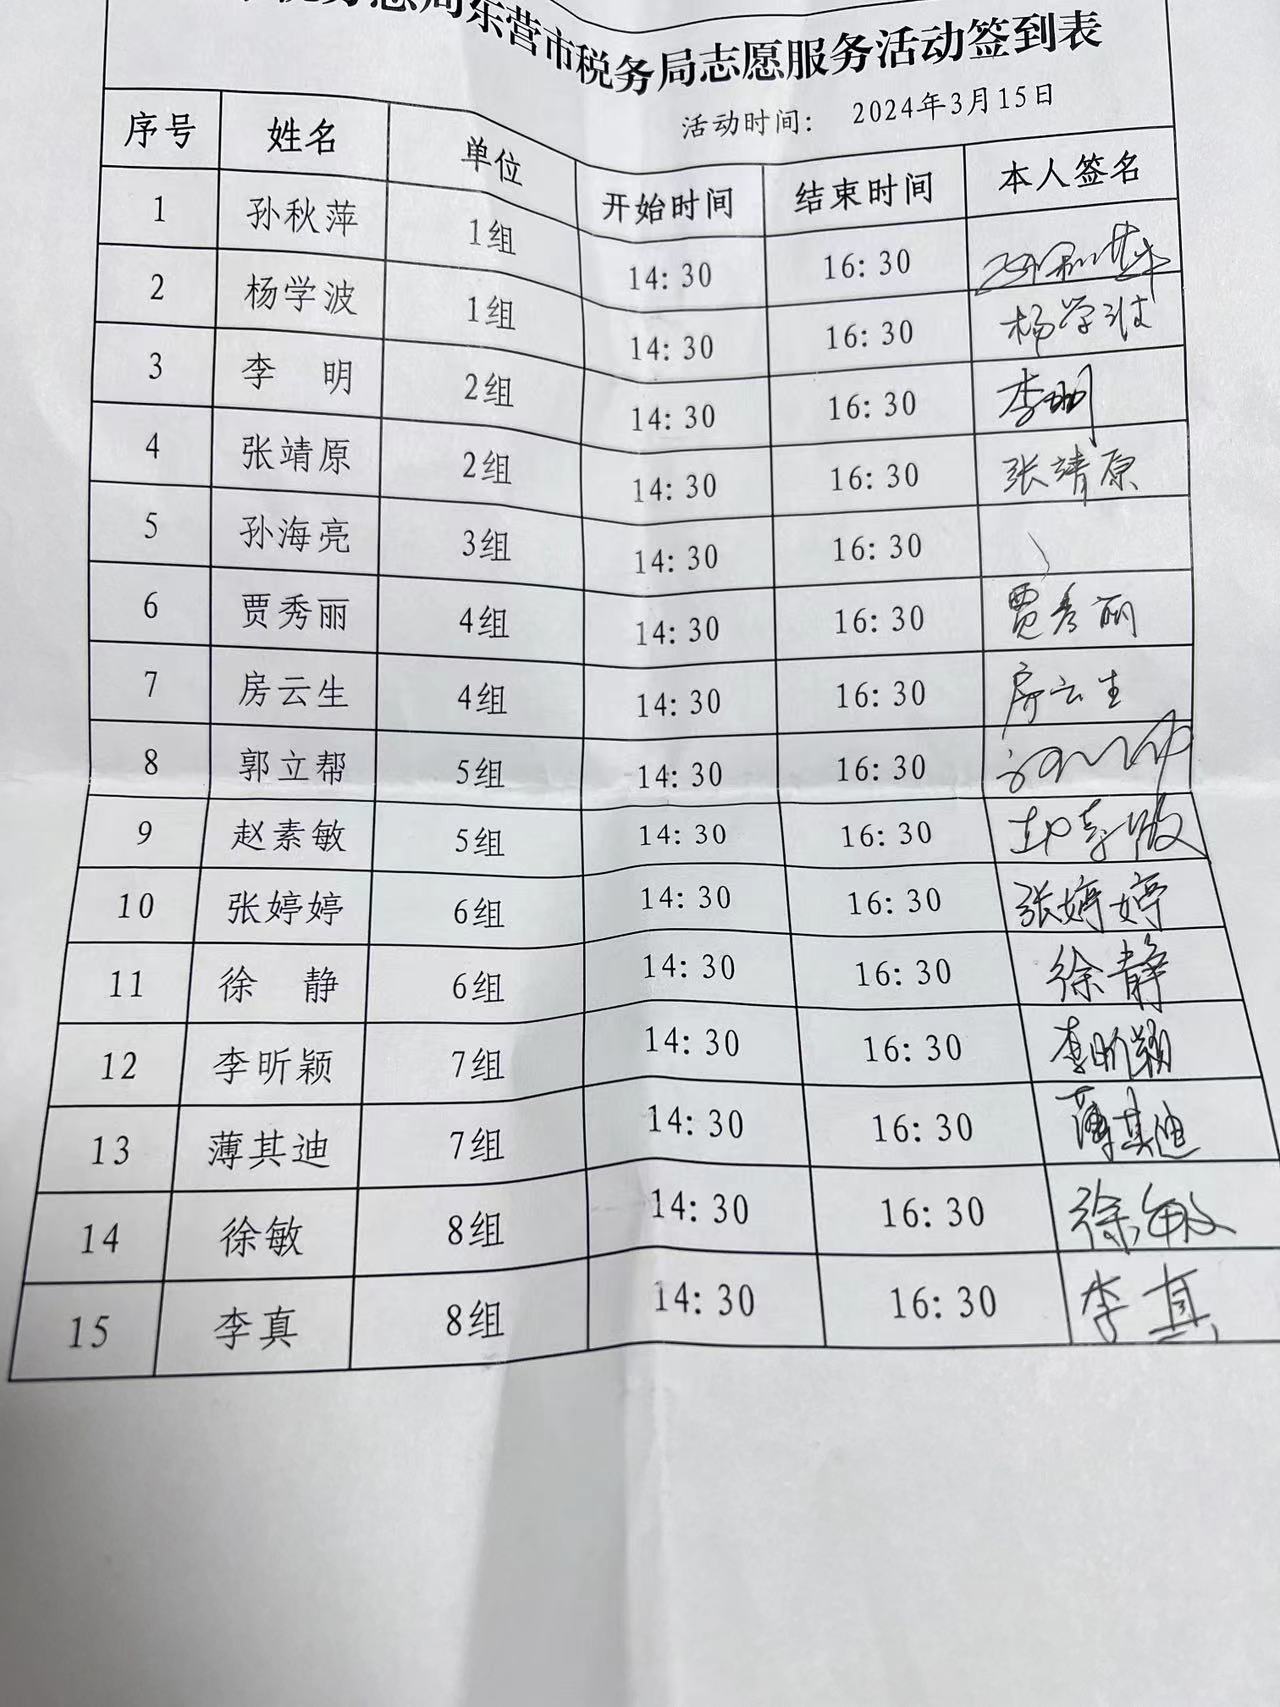 税务总局东营市税务局志愿服务活动签到表
活动时间： 2024年3月15日
序号 姓名 单位 开始时间 结束时间 本人签名
1 孙秋萍 1组 14:30 16:30 孙秋萍
2 杨学波 1组 14:30 16:30 杨学波
3 李 明 2组 14:30 16:30 李明
4 张靖原 2组 14:30 16:30 张靖原
5 孙海亮 3组 14:30 16:30
6 贾秀丽 4组 14:30 16:30 贾秀丽
7 房云生 4组 14:30 16:30 房云生
8 郭立帮 5组 14:30 16:30
9 赵素敏 5组 14:30 16:30 赵素敏
10 张婷婷 6组 14:30 16:30 张婷婷
11 徐 静 6组 14:30 16:30 徐静
12 李昕颖 7组 14:30 16:30 李昕颖
13 薄其迪 7组 14:30 16:30 薄其迪
14 徐敏 8组 14:30 16:30 徐敏
15 李真 8组 14:30 16:30 李真